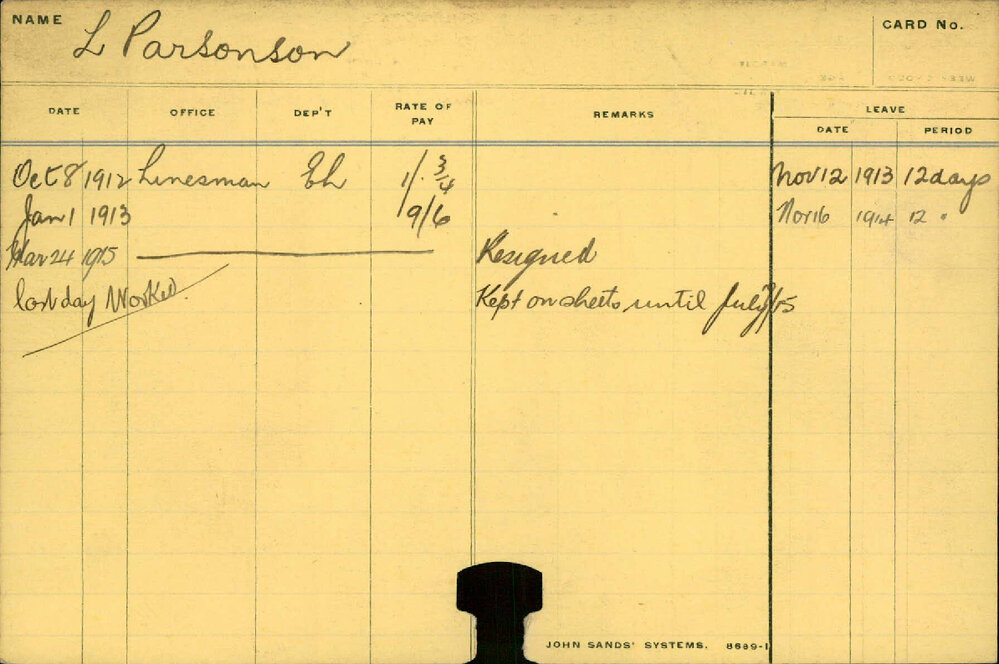 NAME L Parsonson CARD No.
DATE OFFICE DEP'T RATE OF PAY REMARKS LEAVE
DATE PERIOD
Oct 8 1912 Linesman EL 1/. 3/4 Nov 12 1913 12 days
Jan 1 1913 9/6 Nov 16 1914 12 "
Mar 24 1915 Resigned
last day Worked Kept on sheets until July /15
JOHN SANDS' SYSTEMS. 8689-1